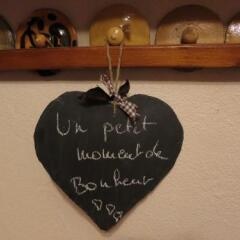 Un petit
moment de
Bonheur